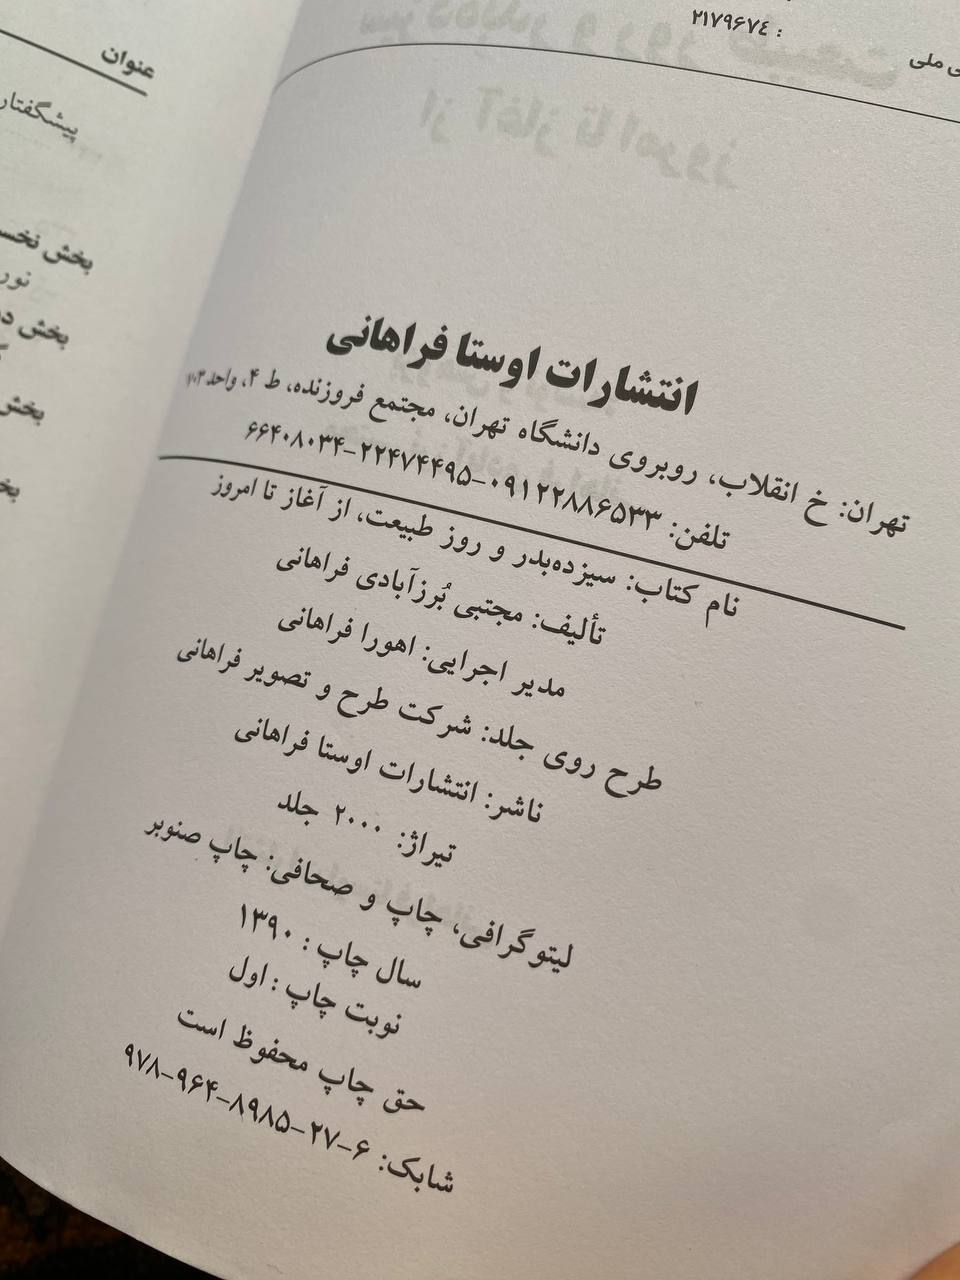 : ۲۱۷۹۶۷٤
ملی
انتشارات اوستا فراهانی
تهران: خ انقلاب، روبروی دانشگاه تهران، مجتمع فروزنده، ط ۴، واحد ۷۰۳
تلفن: ۰۹۱۲۲۸۸۶۵۳۳-۲۲۴۷۴۴۹۵-۶۶۴۰۸۰۳۴
نام کتاب: سیزده‌بدر و روز طبیعت، از آغاز تا امروز
تألیف: مجتبی بُرزآبادی فراهانی
مدیر اجرایی: اهورا فراهانی
طرح روی جلد: شرکت طرح و تصویر فراهانی
ناشر: انتشارات اوستا فراهانی
تیراژ: ۲۰۰۰ جلد
لیتوگرافی، چاپ و صحافی: چاپ صنوبر
سال چاپ : ۱۳۹۰
نوبت چاپ : اول
حق چاپ محفوظ است
شابک: ۶-۲۷-۸۹۸۵-۹۶۴-۹۷۸
عنوان
پیشگفتار
بخش نخس
نور
بخش
بخش